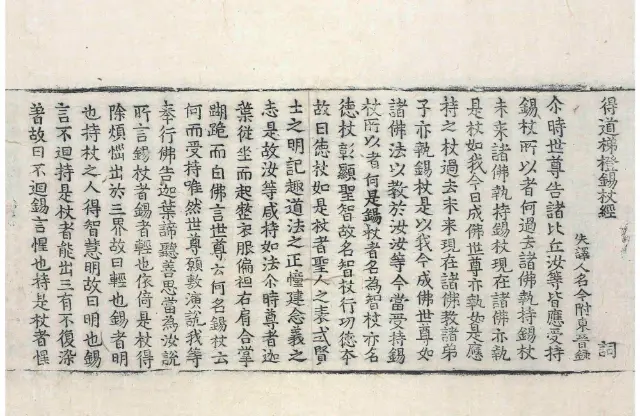 得道梯橙錫杖經 詞
失譯人名今附東晉錄
尒時世尊告諸比丘汝等皆應受持
錫杖所以者何過去諸佛執持錫杖
未來諸佛執持錫杖現在諸佛亦執
是杖如我今日成佛世尊亦執如是應
持之杖過去未來現在諸佛教諸弟
子亦執錫杖是以我今成佛世尊如
諸佛法以教於汝汝等今當受持錫
杖所以者何是錫杖者名為智杖亦名
德杖彰顯聖智故名智杖行功德夲
故曰德杖如是杖者聖人之表式賢
士之明記趣道法之正幢建念義之
志是故汝等咸持如法尒時尊者迦
葉從坐而起整衣服偏袒右肩合掌
跪而白佛言世尊云何名錫杖云
何而受持唯然世尊願敷演說我等
奉行佛告迦葉諦聽善思當為汝說
所言錫杖者錫者輕也依倚是杖得
除煩惱出於三界故曰輕也錫者明
也持杖之人得智慧明故曰明也錫
言不迴持是杖者能出三有不復染
著故曰不迴錫言惺也持是杖者惺